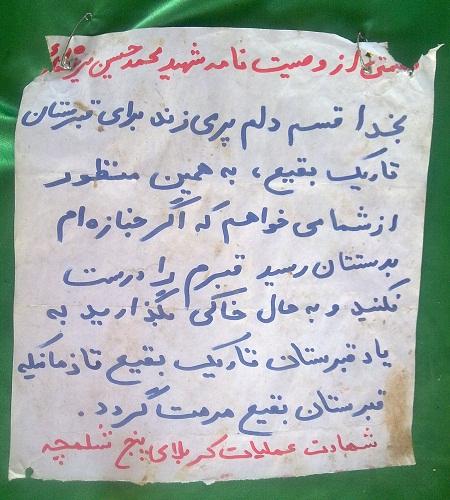 قسمتی از وصیت نامه شهید محمد حسین
بخدا قسم دلم پری زند برای قبرستان
تاریک بقیع، به همین منظور
از شما می خواهم که اگر جنازه ام
بدستتان رسید قبرم را درست
نکنید و به حال خاکی بگذارید به
یاد قبرستان تاریک بقیع تا زمانیکه
قبرستان بقیع مرمت گردد.
شهادت عملیات کربلای پنج شلمچه